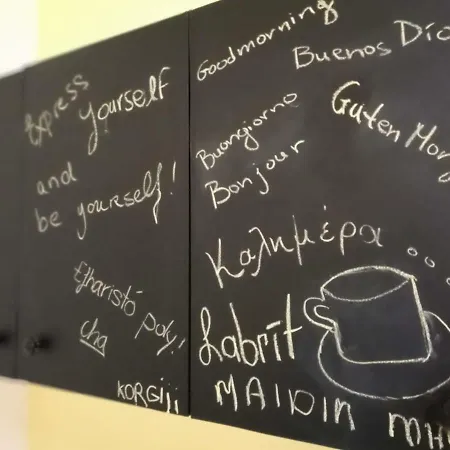 Express
yourself
and
be yourself!
Efharistó poly!
cha
KORGIJI
Goodmorning
Buenos Día
Buongiorno
Guten Morg
Bonjour
Καλημέρα
Labrīt
MAIDIN MH